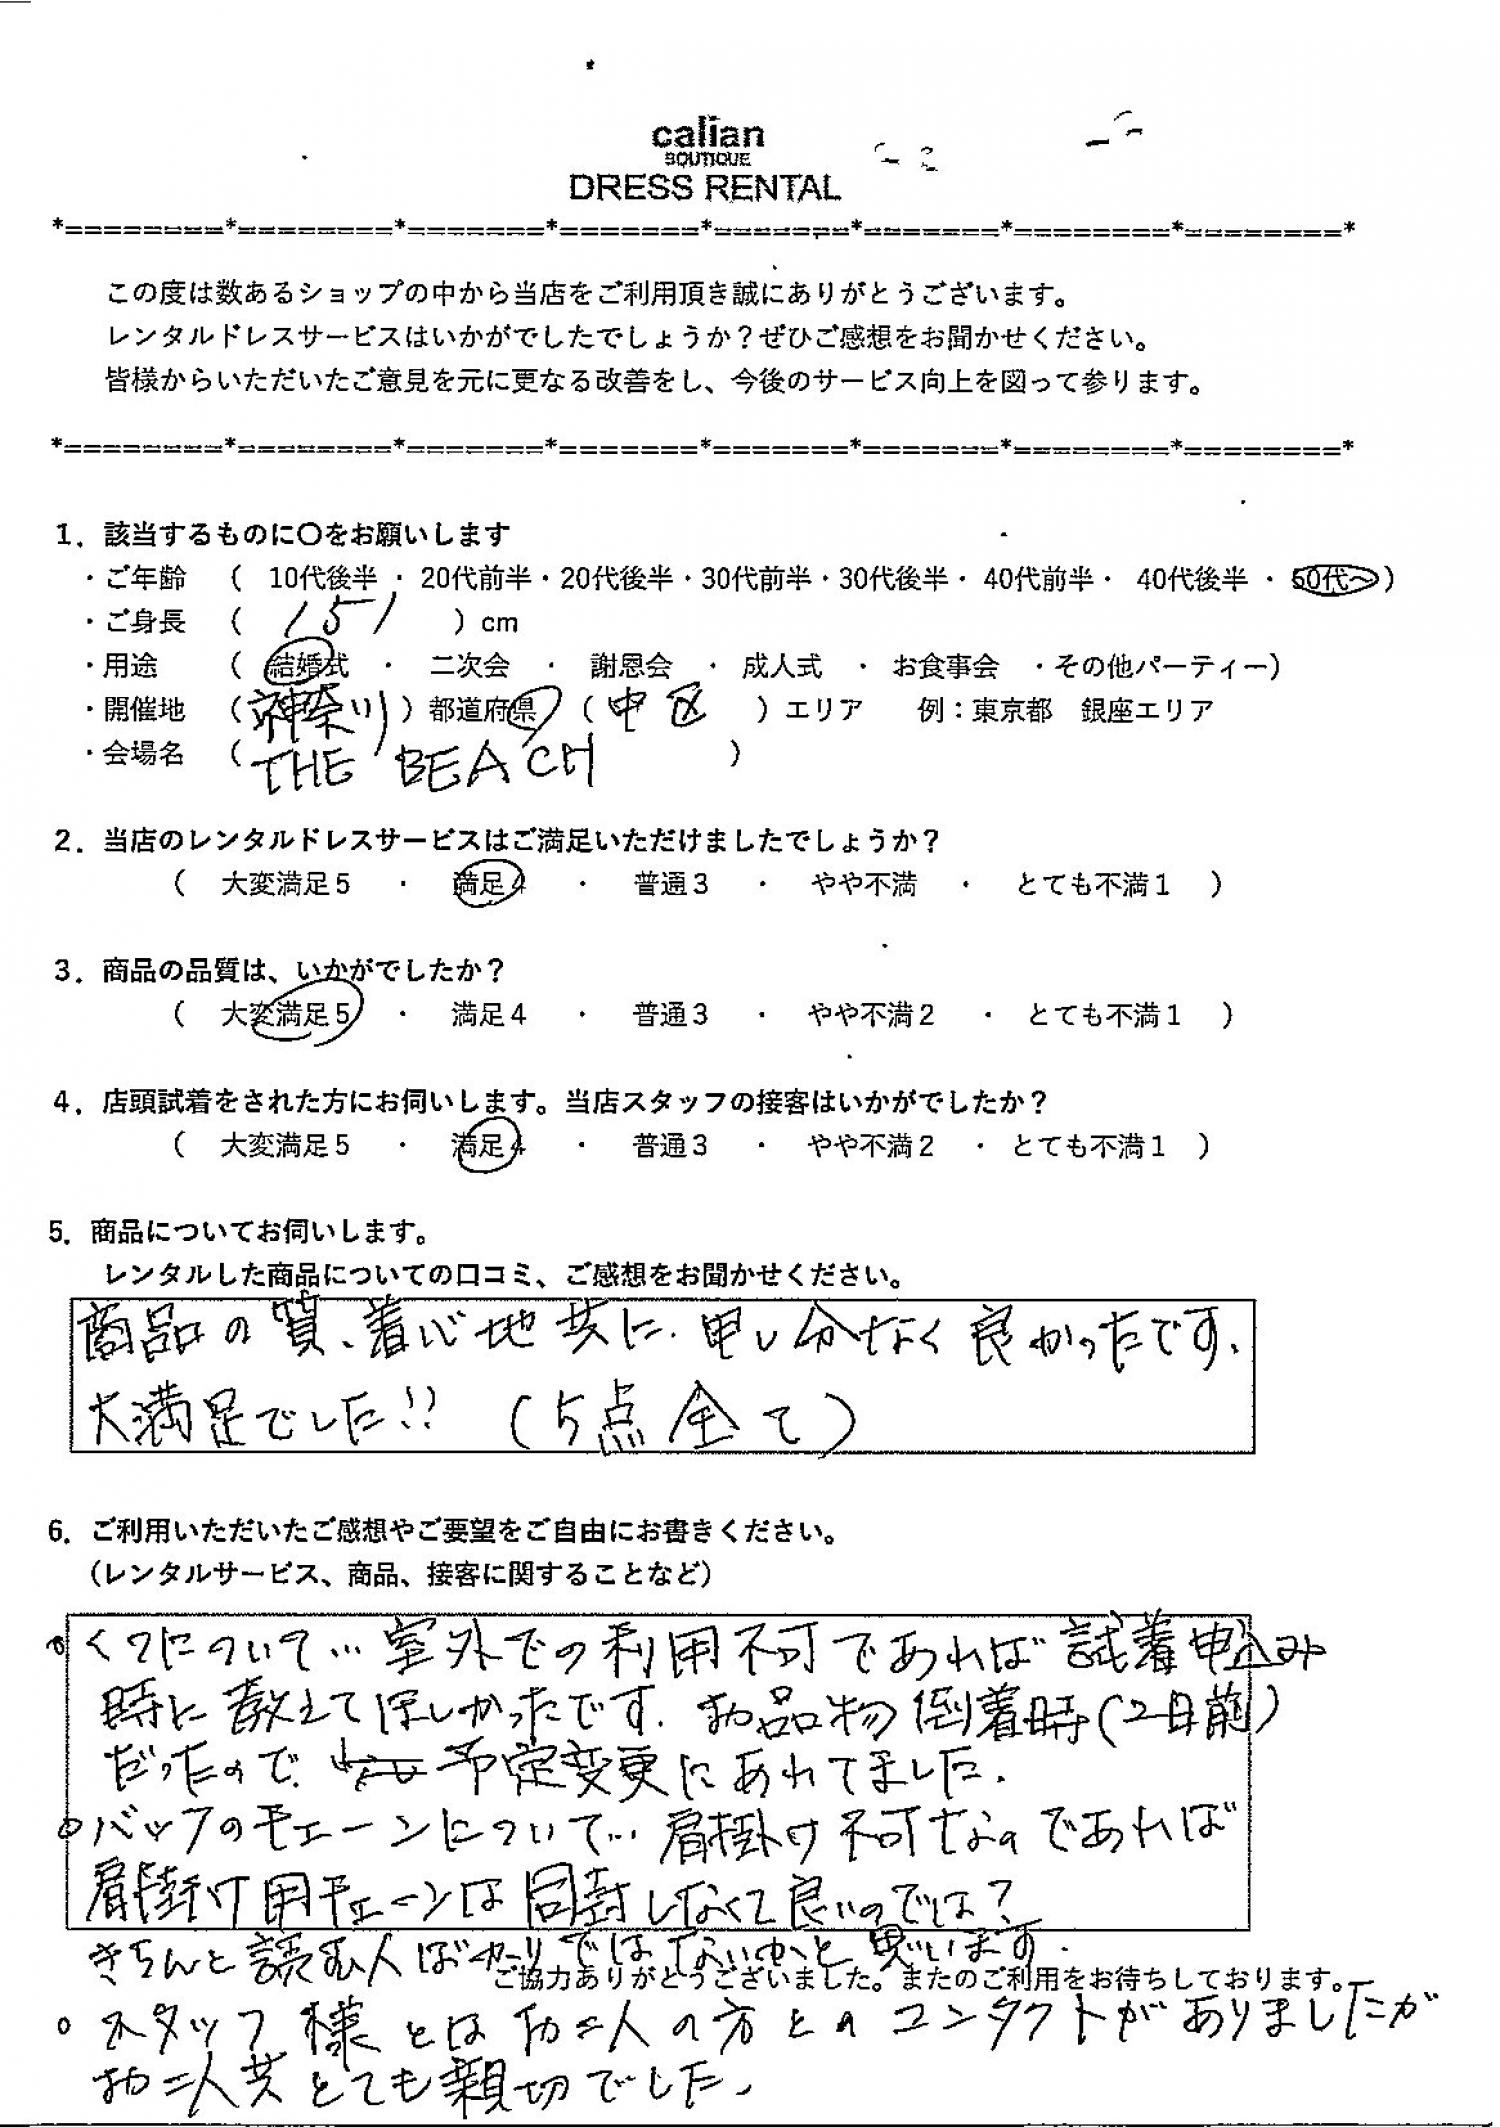 calian
BOUTIQUE
DRESS RENTAL
*========*========*=======*=======*=======*=======*========*========*
この度は数あるショップの中から当店をご利用頂き誠にありがとうございます。
レンタルドレスサービスはいかがでしたでしょうか?ぜひご感想をお聞かせください。
皆様からいただいたご意見を元に更なる改善をし、今後のサービス向上を図って参ります。
*========*========*=======*=======*=======*=======*========*========*
1. 該当するものに〇をお願いします
・ご年齢 ( 10代後半 ・ 20代前半・20代後半・30代前半・30代後半・ 40代前半・ 40代後半 ・ 50代～)
・ご身長 ( 151 ) cm
・用途 ( 結婚式 ・ 二次会 ・ 謝恩会 ・ 成人式 ・ お食事会 ・その他パーティー)
・開催地 (神奈川) 都道府県 ( 中区 ) エリア 例:東京都 銀座エリア
・会場名 ( THE BEACH )
2. 当店のレンタルドレスサービスはご満足いただけましたでしょうか?
( 大変満足5 ・ 満足4 ・ 普通3 ・ やや不満 ・ とても不満1 )
3. 商品の品質は、いかがでしたか?
( 大変満足5 ・ 満足4 ・ 普通3 ・ やや不満2 ・ とても不満1 )
4. 店頭試着をされた方にお伺いします。当店スタッフの接客はいかがでしたか?
( 大変満足5 ・ 満足4 ・ 普通3 ・ やや不満2 ・ とても不満1 )
5. 商品についてお伺いします。
レンタルした商品についての口コミ、ご感想をお聞かせください。
商品の質、着心地共に、申し分なく良かったです。
大満足でした!! (5点全て)
6. ご利用いただいたご感想やご要望をご自由にお書きください。
(レンタルサービス、商品、接客に関することなど)
○くつについて…室外での利用不可であれば試着申込み
時に教えてほしかったです。お品物到着時(2日前)
だったので、予定変更にあわてました。
○バッグのチェーンについて…肩掛け不可なのであれば
肩掛け用チェーンは同封しなくて良いのでは?
きちんと読む人ばかりではないかと思います。
ご協力ありがとうございました。またのご利用をお待ちしております。
○ スタッフ様とはお二人の方とのコンタクトがありましたが
お二人共とても親切でした。